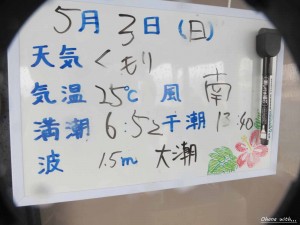 5月3日(日)
天気 くもり
気温 25℃ 風 南
満潮 6:52 干潮 13:40
波 1.5m 大潮